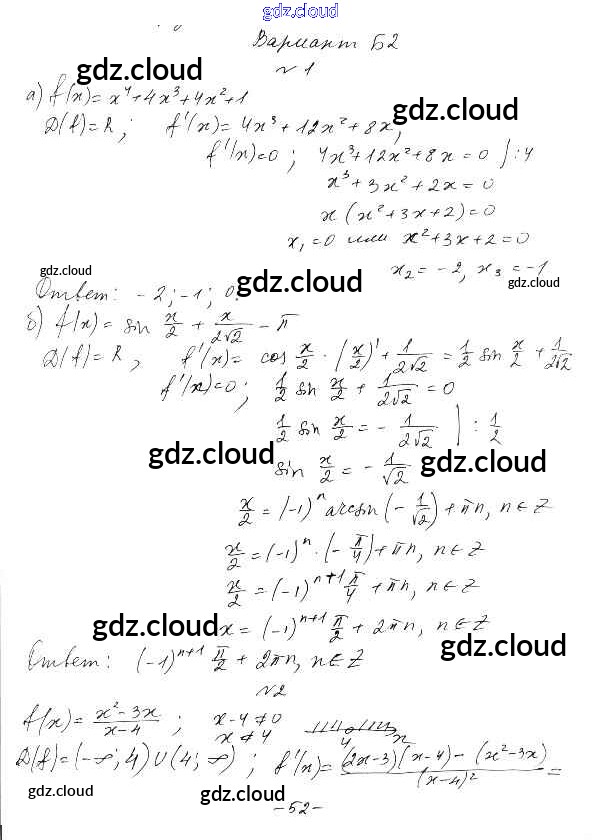 gdz.cloud
Вариант Б2
gdz.cloud
№1
а) f(x) = x⁴ + 4x³ + 4x² + 1
gdz.cloud
D(f) = R; f'(x) = 4x³ + 12x² + 8x,
f'(x) = 0; 4x³ + 12x² + 8x = 0 | : 4
x³ + 3x² + 2x = 0
x (x² + 3x + 2) = 0
x₁ = 0 или x² + 3x + 2 = 0
gdz.cloud gdz.cloud x₂ = -2, x₃ = -1
gdz.cloud
Ответ: -2; -1; 0.
б) f(x) = sin x/2 + x/2√2 - π
D(f) = R, f'(x) = cos x/2 · (x/2)' + 1/2√2 = 1/2 sin x/2 + 1/2√2
f'(x) = 0; 1/2 sin x/2 + 1/2√2 = 0
1/2 sin x/2 = - 1/2√2 | : 1/2
gdz.cloud gdz.cloud
sin x/2 = - 1/√2
x/2 = (-1)ⁿ arcsin (- 1/√2) + πn, n ∈ Z
x/2 = (-1)ⁿ · (- π/4) + πn, n ∈ Z
x/2 = (-1)ⁿ⁺¹ π/4 + πn, n ∈ Z
gdz.cloud x = (-1)ⁿ⁺¹ π/2 + 2πn, n ∈ Z
gdz.cloud
Ответ: (-1)ⁿ⁺¹ π/2 + 2πn, n ∈ Z
№2
f(x) = x² - 3x/x - 4; x - 4 ≠ 0
x ≠ 4 4 x
D(f) = (-∞; 4) ∪ (4; ∞); f'(x) = (2x - 3)(x - 4) - (x² - 3x)/(x - 4)² =
gdz.cloud gdz.cloud gdz.cloud
- 52 -